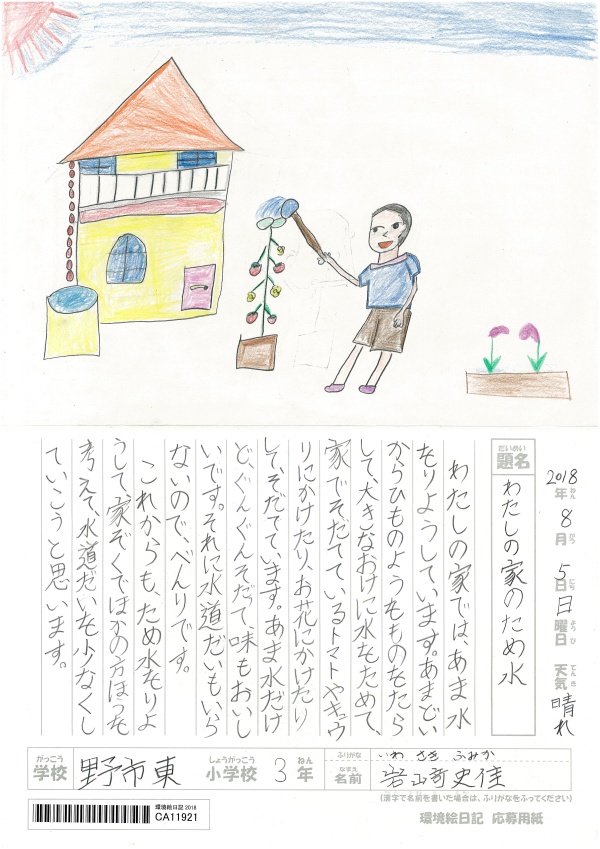 2018年ねん 8月がつ 5日にち 日曜日ようび 天気てんき 晴れ
だいめい
題名
わたしの家のため水
わたしの家では、あま水
をりようしています。あまどい
からひものようなものをたら
して、大きなおけに水をためて、
家でそだてているトマトやキュウ
リにかけたり、お花にかけたり
して、そだてています。あま水だけ
ど、ぐんぐんそだて、味もおいし
いです。それに水道だいもいら
ないので、べんりです。
これからも、ため水をりよ
うして家ぞくでほかの方ほうを
考えて、水道だいを少なくし
ていこうと思います。
がっこう しょうがっこう ねん ふりがな いわ さき ふみか
学校 野市東 小学校 3年 なまえ 名前 岩崎史佳
(漢字で名前を書いた場合は、ふりがなをふってください)
環境絵日記 2018
CA11921
環境絵日記 応募用紙